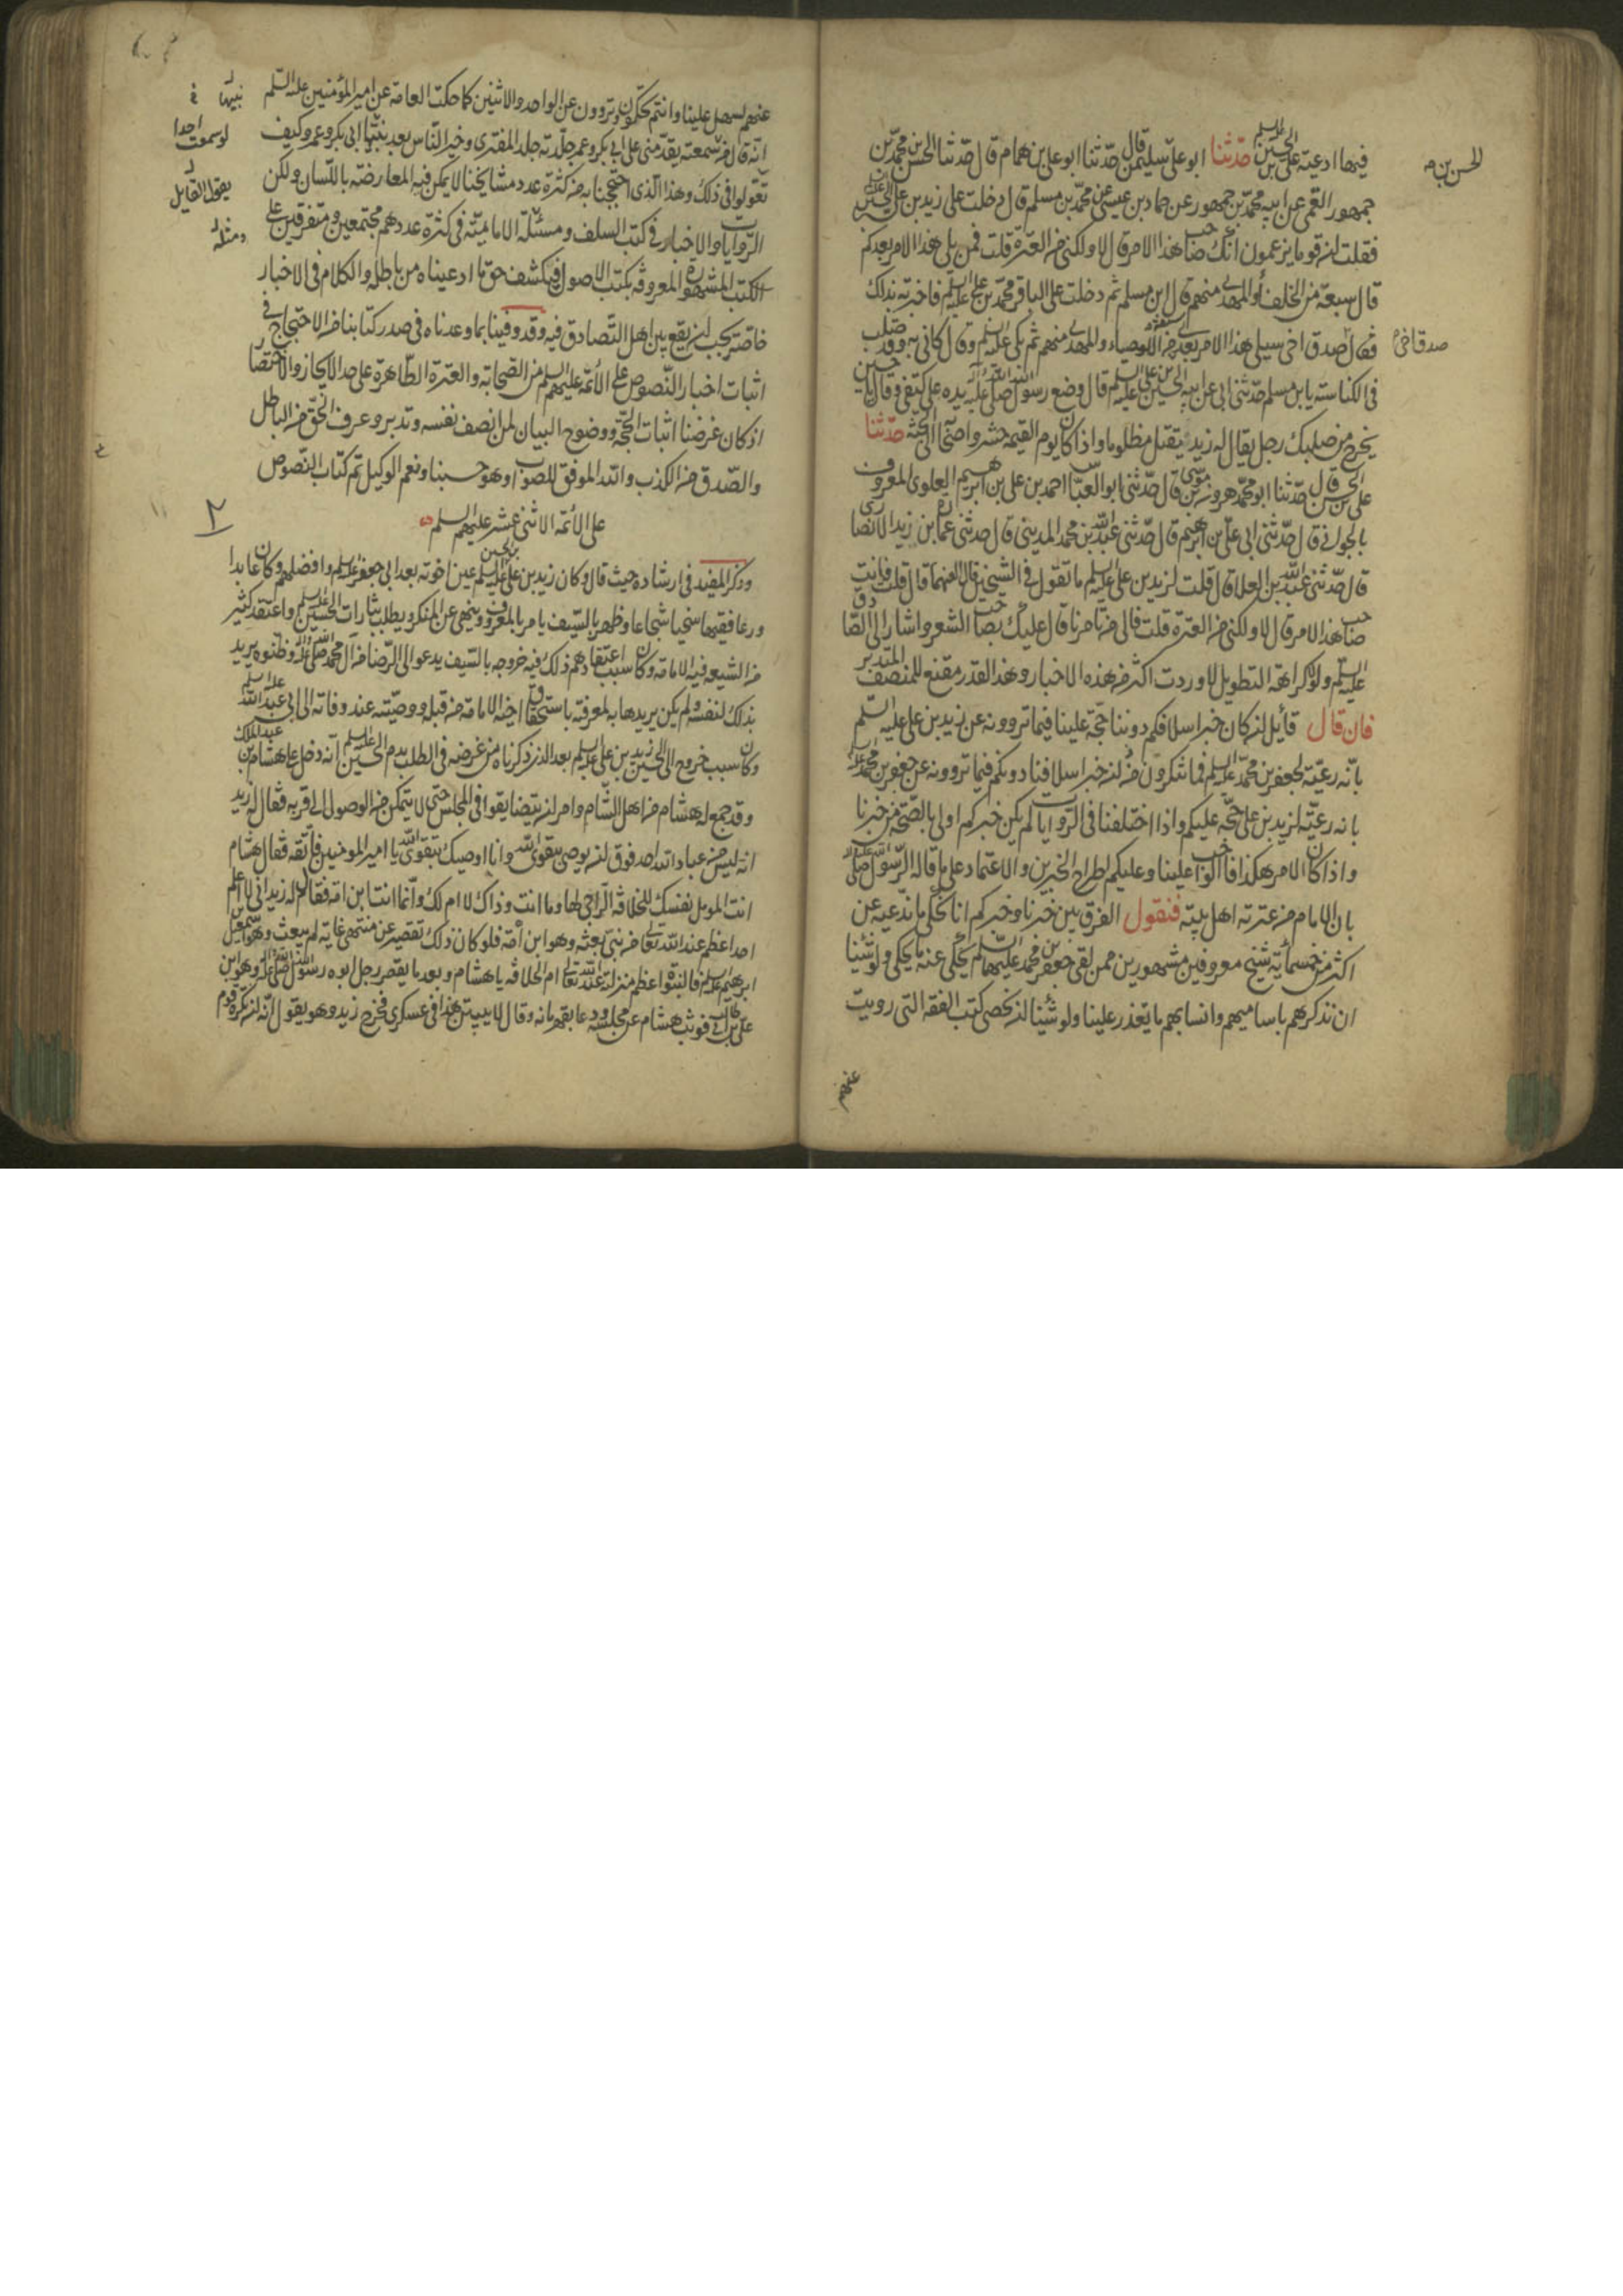 فيها ادعية علي بن الحسين عليه السلم حدثنا ابو علي سليمن قال حدثنا ابو علي بن همام قال حدثنا الحسن بن محمد بن
الحسن بن
جمهور القمي عن ابيه محمد بن جمهور عن حماد بن عيسى عن محمد بن مسلم قال دخلت على زيد بن علي بن الحسين
فقلت ان قوما يزعمون انك صاحب هذا الامر قال لا ولكني من العترة قلت فمن يلي هذا الامر بعدكم
قال سبعة من الخلفأ والمهدي منهم قال ابن مسلم ثم دخلت على الباقر محمد بن علي عليه السلم فاخبرته بذلك
فقال صدق اخي سيلي هذا الامر بعدي سبعة من الاوصياء والمهدي منهم ثم بكى عليه السلم وقال كاني به وقد صلب
صدق اخي
في الكناسة يابن مسلم حدثني ابي عن ابيه الحسين بن علي عليه السلم قال وضع رسول الله صلى الله عليه وآله يده على كتفي وقال يا حسين
يخرج من صلبك رجل يقال له زيد يقتل مظلوما واذا كان يوم القيمة حشر واصحابه الى الجنة حدثنا
علي بن الحسن قال حدثنا ابو محمد هرون بن موسى قال حدثني ابو العباس احمد بن علي بن ابرهيم العلوي المعروف
بالجواني قال حدثني ابي علي بن ابرهيم قال حدثني عبد الله بن محمد المديني قال حدثني عمارة بن زيد الانصاري
قال حدثني عبد الله بن العلا قال قلت لزيد بن علي عليه السلم ما تقول في الشيخين قال العنهما قال قلت فانت
صاحب هذا الامر قال لا ولكني من العترة قلت فالى من تامرنا قال عليك بصاحب الشعر واشار الى الصادق
عليه السلم ولولا كراهة التطويل لاوردت اكثر من هذه الاخبار وهذا القدر مقنع للمنصف المتدبر
فان قال قائل ان كان خبر اسلافكم دوننا حجة علينا فيما تروونه عن زيد بن علي عليه السلم
بانه رعية لجعفر بن محمد عليه السلم فما تنكرون من ان خبر اسلافنا دونكم فيما تروونه عن جعفر بن محمد
بانه رعية لزيد بن علي حجة عليكم واذا اختلفنا في الروايات لم يكن خبركم اولى بالصحة من خبرنا
واذا كان الامر هكذا فالواجب علينا وعليكم اطراح الخبرين والاعتماد على ما قاله الرسول صلى الله عليه وآله
بان الامام من عترته اهل بيته فنقول الفرق بين خبرنا وخبركم انا نحكي ما ندعيه عن
اكثر من خمسمأية شيخ معروفين مشهورين ممن لقي جعفر بن محمد عليهما السلم يحكي عنه ما يحكي ولو شئنا
ان نذكرهم باساميهم وانسابهم ما يتعذر علينا ولو شئنا ان نحصي كتب الفقه التي رويت
عنهم
عنهم لسهل علينا وانتم تحكون وتروون عن الواحد والاثنين كما حكت العامة عن امير المؤمنين عليه السلم
انه قال من سمعته يقدمني على ابي بكر وعمر جلدته جلد المفتري وخير الناس بعد نبيها ابي بكر وعمر وكيف
نبيها
لو سمعت احدا
يقول القايل
ومثله
تقولوا في ذلك وهذا الذي احتججنا به من كثرة عدد مشايخنا لا يمكن فيه المعارضة باللسان ولكن
الروايات والاخبار في كتب السلف ومسئلة الامامية في كثرة عددهم مجتمعين ومتفرقين على
الكتب المشهورة المعروفة بكتب الاصول فيكشف حق ما ادعيناه من باطله والكلام في الاخبار
خاصة يجب ان يقع بين اهل التصادق فيه وقد وفينا بما وعدناه في صدر كتابنا من الاحتجاج في
اثبات اخبار النصوص على الأئمة عليهم السلم من الصحابة والعترة الطاهرة على حد الايجاز والاختصار
اذ كان غرضنا اثبات الحجة ووضوح البيان لمن انصف نفسه وتدبر وعرف الحق من الباطل
والصدق من الكذب والله الموفق للصواب وهو حسبنا ونعم الوكيل تم كتاب النصوص
على الأئمة الاثنى عشر عليهم السلم
٢
وذكر المفيد في ارشاده حيث قال وكان زيد بن علي بن الحسين عليه السلم عين اخوته بعد ابي جعفر عليه السلم وافضلهم وكان عابدا
ورعا فقيها سخيا شجاعا وظهر بالسيف يامر بالمعروف وينهى عن المنكر ويطلب بثارات الحسين عليه السلم واعتقد كثير
من الشيعه فيه الامامة وكان سبب اعتقادهم ذلك فيه خروجه بالسيف يدعو الى الرضا من آل محمد صلى الله عليه وآله فظنوه يريد
بذلك لنفسه ولم يكن يريدها به لمعرفته باستحقاق اخيه الامامة من قبله ووصيته عند وفاته الى ابي عبد الله عليه السلم
وكان سبب خروج ابي الحسين زيد بن علي عليه السلم بعد الذي ذكرناه من غرضه في الطلب بدم الحسين عليه السلم انه دخل على هشام بن عبد الملك
وقد جمع له هشام من اهل الشام وامر ان يتضايقوا في المجلس حتى لا يتمكن من الوصول الى قربه فقال له زيد
انه ليس من عباد الله احد فوق ان يوصى بتقوى الله وانا اوصيك بتقوى الله يا امير المومنين فاتقه فقال هشام
انت المؤهل نفسك للخلافة الراجي لها وما انت وذاك لا ام لك وانما انت ابن امة فقال له زيد اني لا اعلم
احدا اعظم عند الله تعالى من نبي بعثه وهو ابن امة فلو كان ذلك تقصير عن منتهى غاية لم يبعث وهو اسمعيل بن
ابرهيم عليه السلم فالنبوة اعظم منزلة عند الله تعالى ام الخلافة يا هشام وبعد ما يقصر رجل ابوه رسول الله صلى الله عليه وآله وهو ابن
علي بن ابي طالب فوثب هشام عن مجلسه ودعا بقهرمانه وقال لا يبيتن هذا في عسكري فخرج زيد وهو يقول انه لم يكره قوم